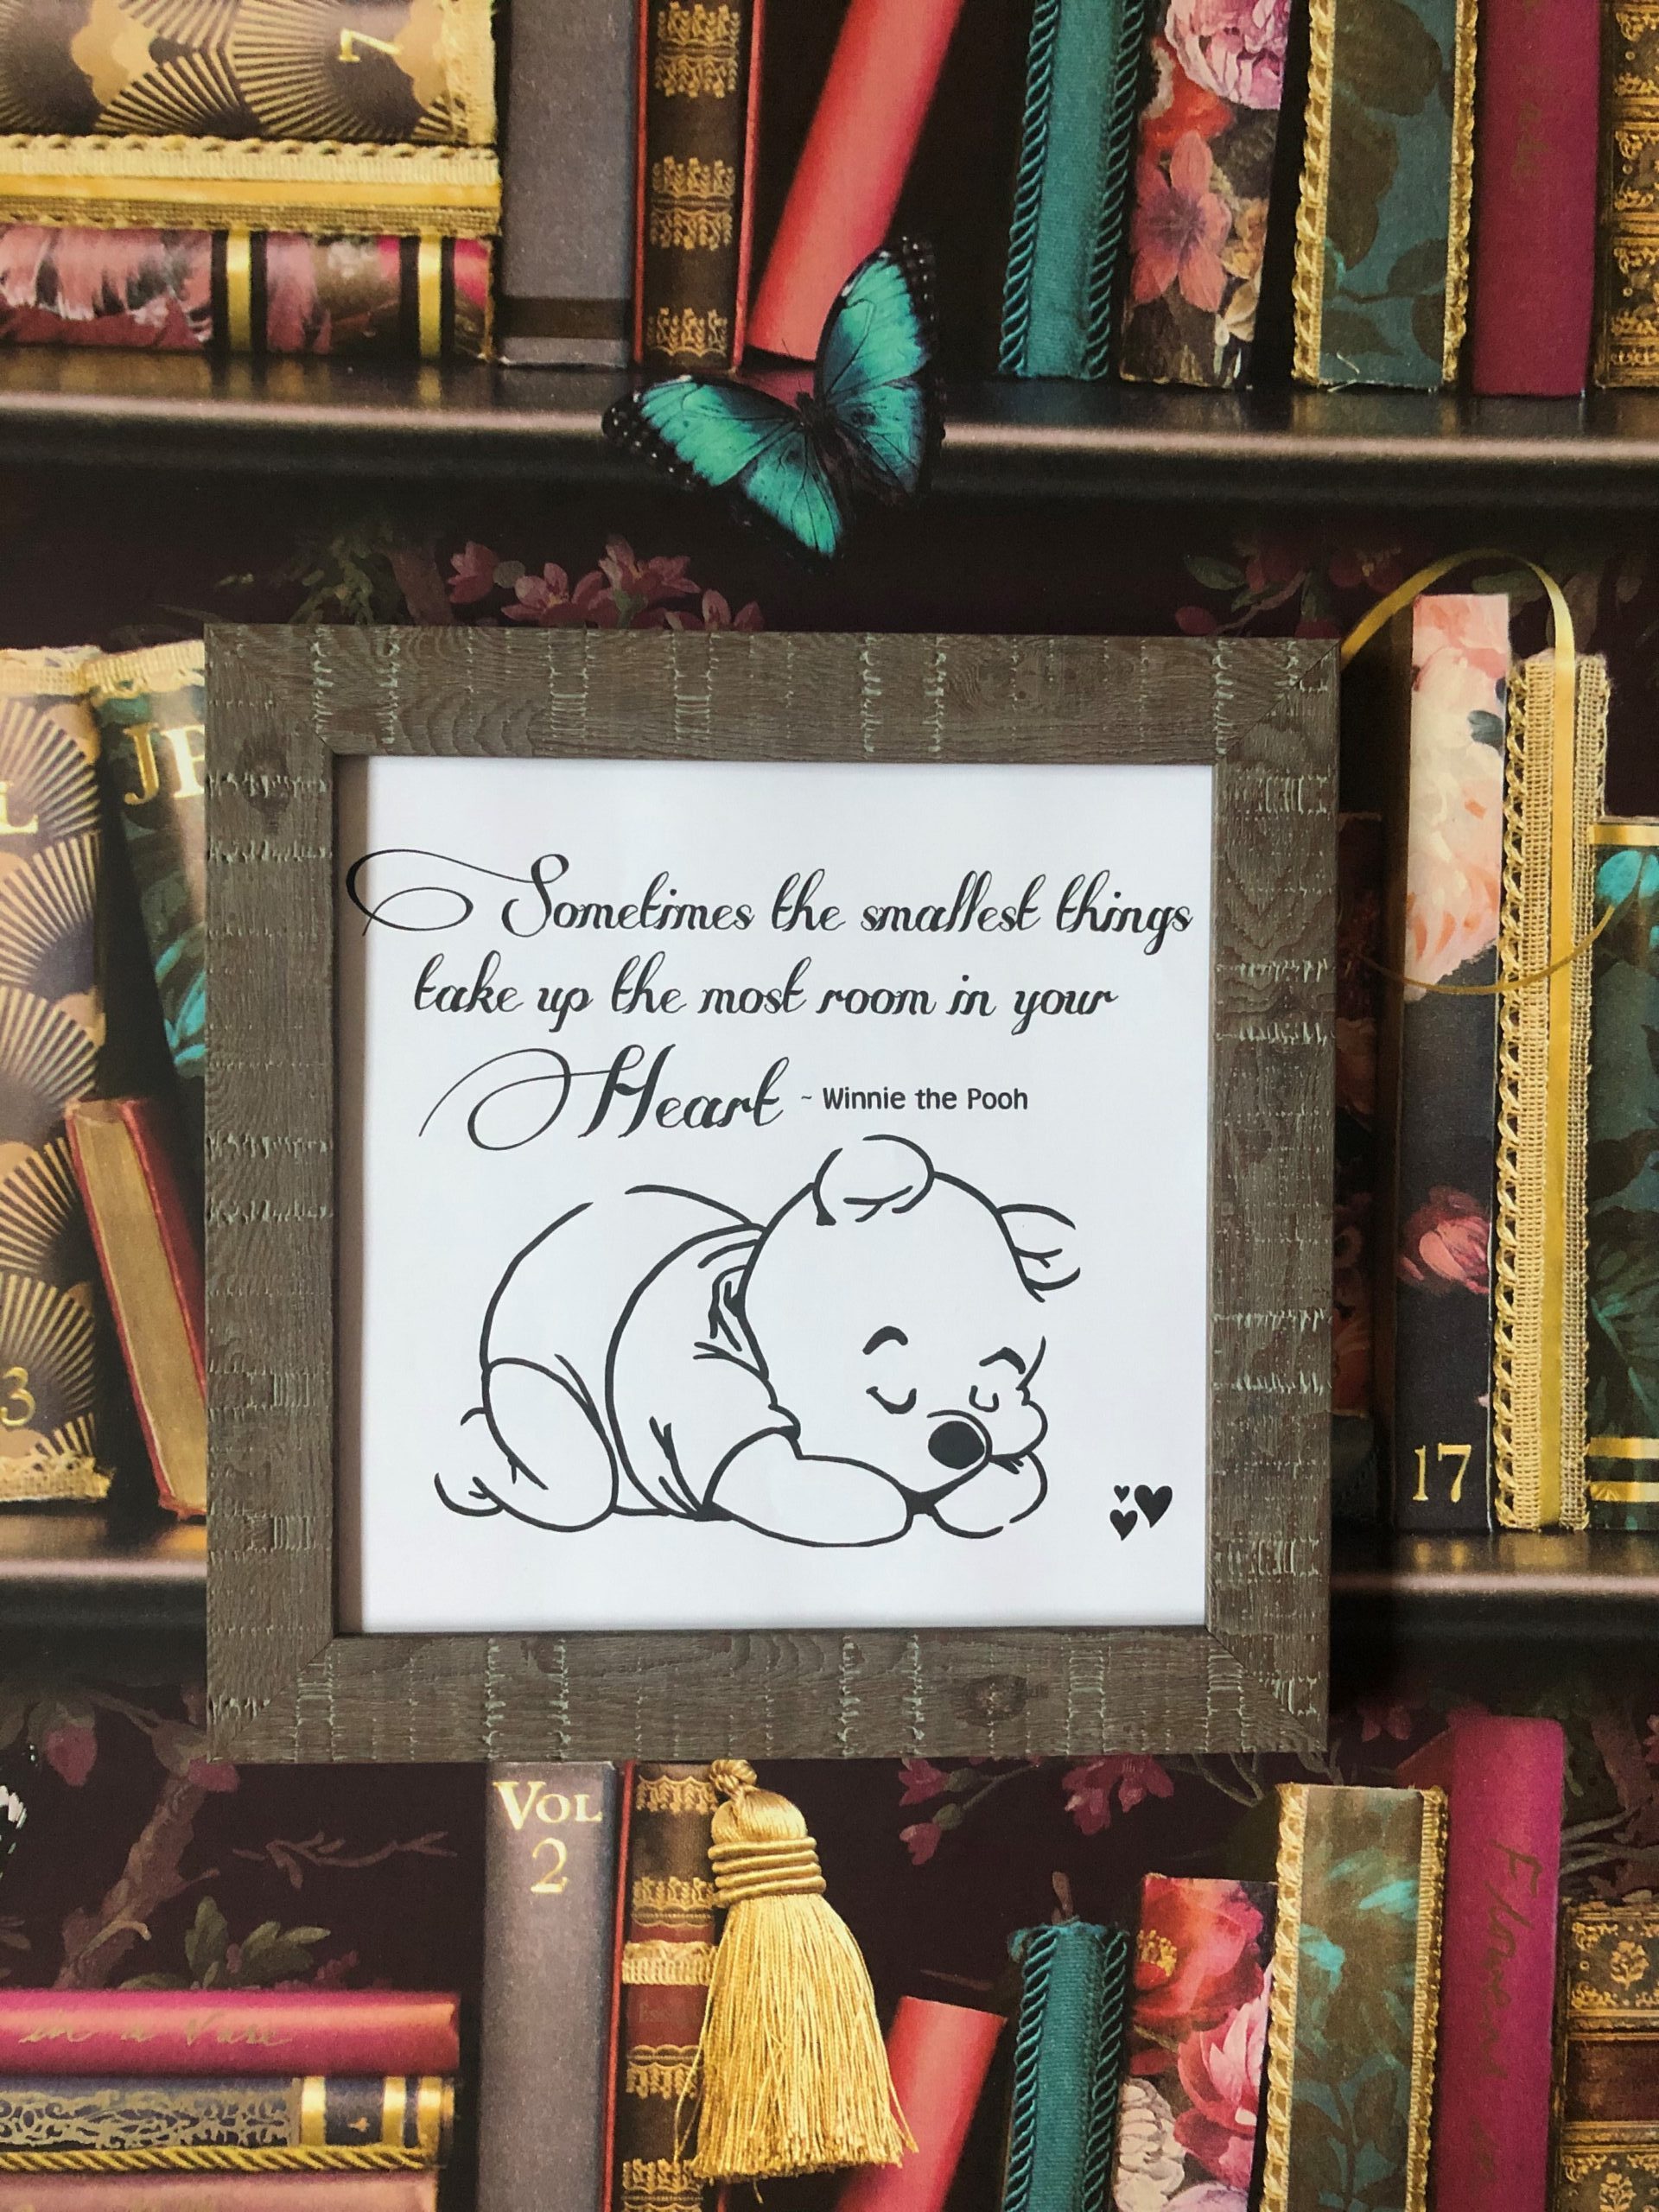 7
JE
L
Sometimes the smallest things
take up the most room in your
Heart ~ Winnie the Pooh
3
17
VOL
2
in a Vase